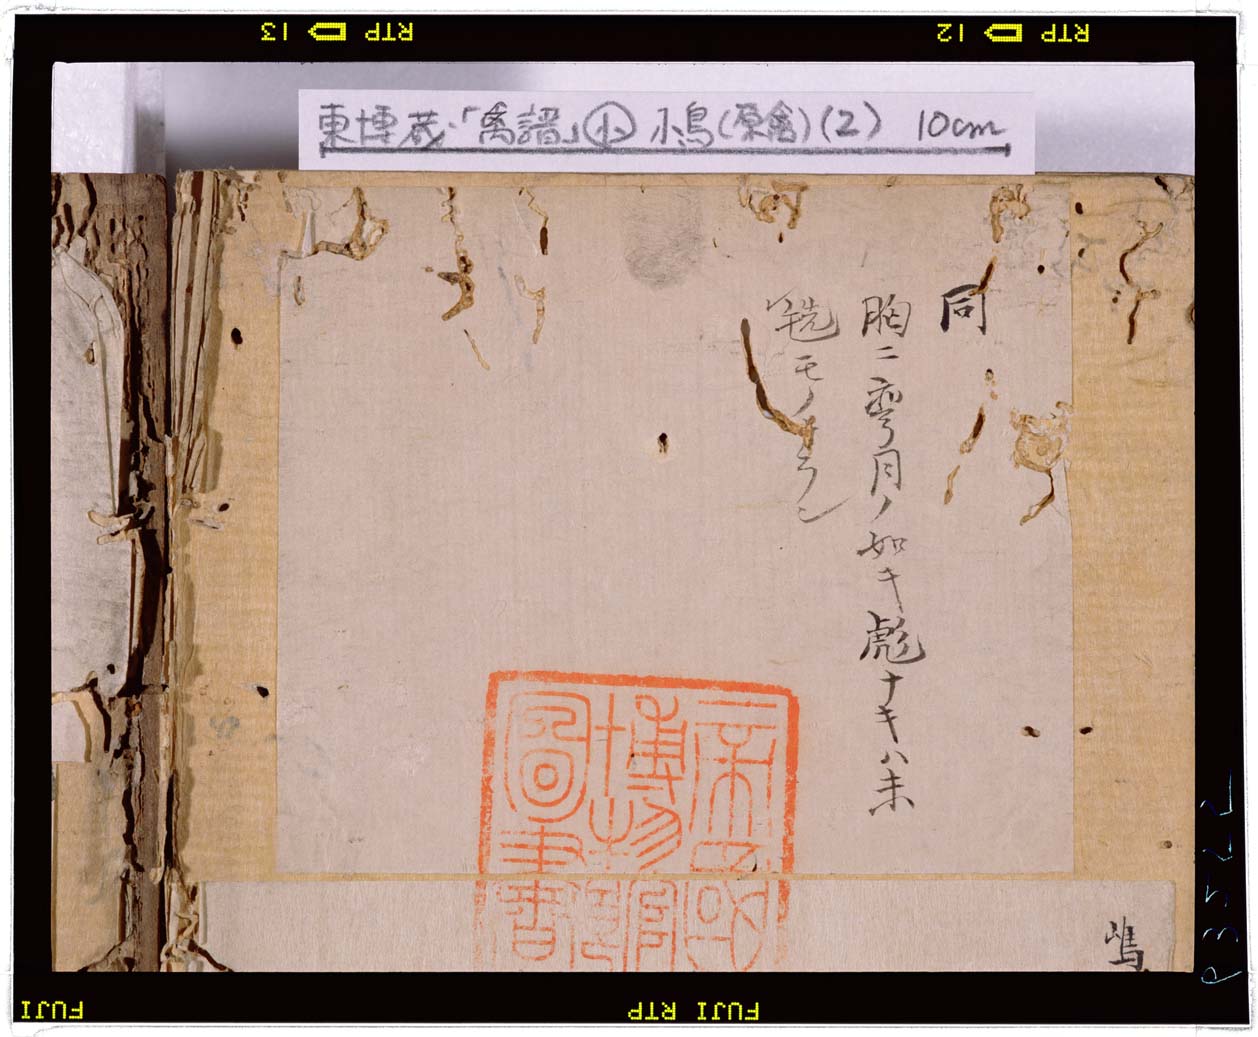 RTP 13
RTP 12
東博蔵・「禽譜」 小鳥(原禽)(2) 10cm
同
胸ニ彎月ノ如キ彪ナキハ未
毨モノナラン
帝国
博物館
圖書
嶋
FUJI
FUJI RTP